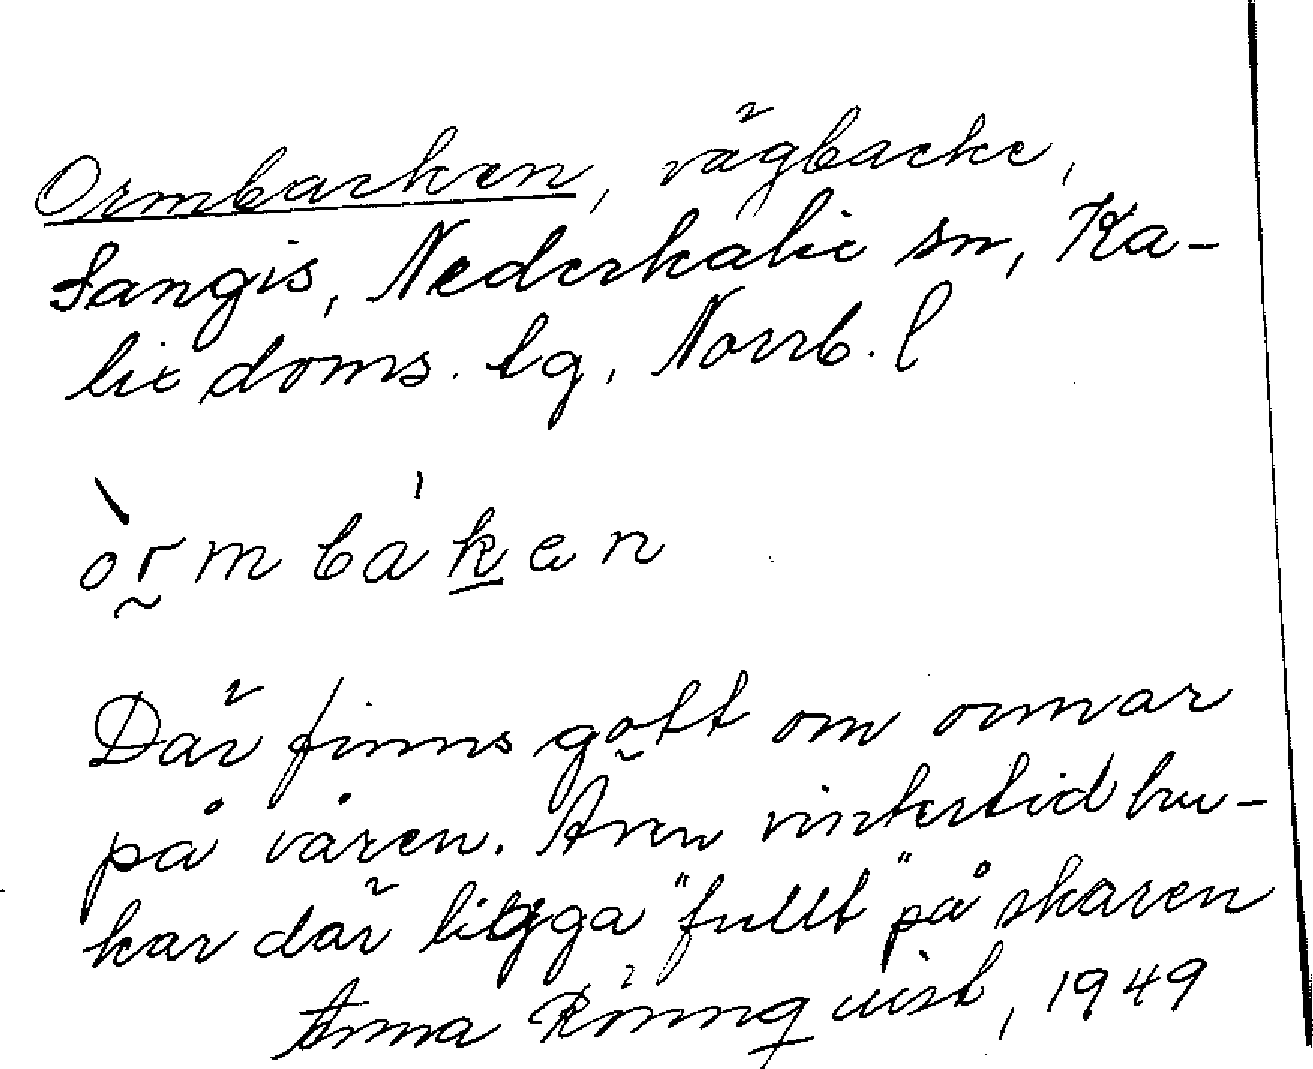 Ormbacken, vägbacke,
Sangis, Nederkalix sn, Ka-
lix doms. lg, Norrb. l
òrmbáken
Där finns gott om ormar
på våren. Även vintertid bru-
kar där ligga "fullt" på skaren
Anna Rönnquist, 1949